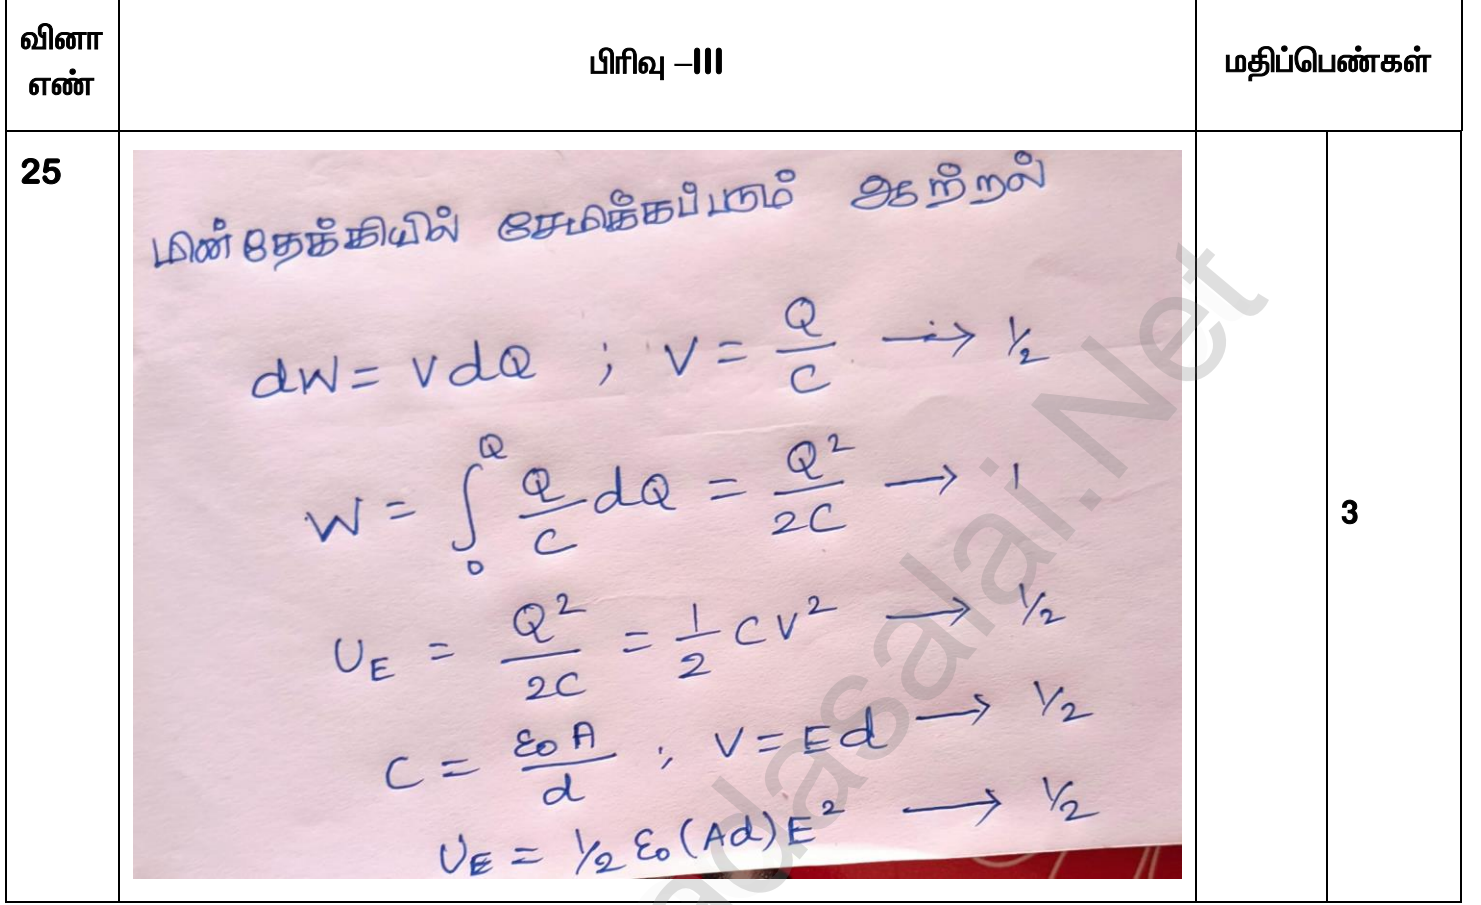 வினா எண்
பிரிவு –III
மதிப்பெண்கள்
25
மின்தேக்கியில் சேமிக்கப்படும் ஆற்றல்
dW = VdQ ; V = Q/C → ½
W = ∫₀^Q Q/C dQ = Q²/2C → 1
3
U_E = Q²/2C = 1/2 CV² → ½
C = ε₀A/d ; V = Ed → ½
U_E = ½ ε₀(Ad)E² → ½